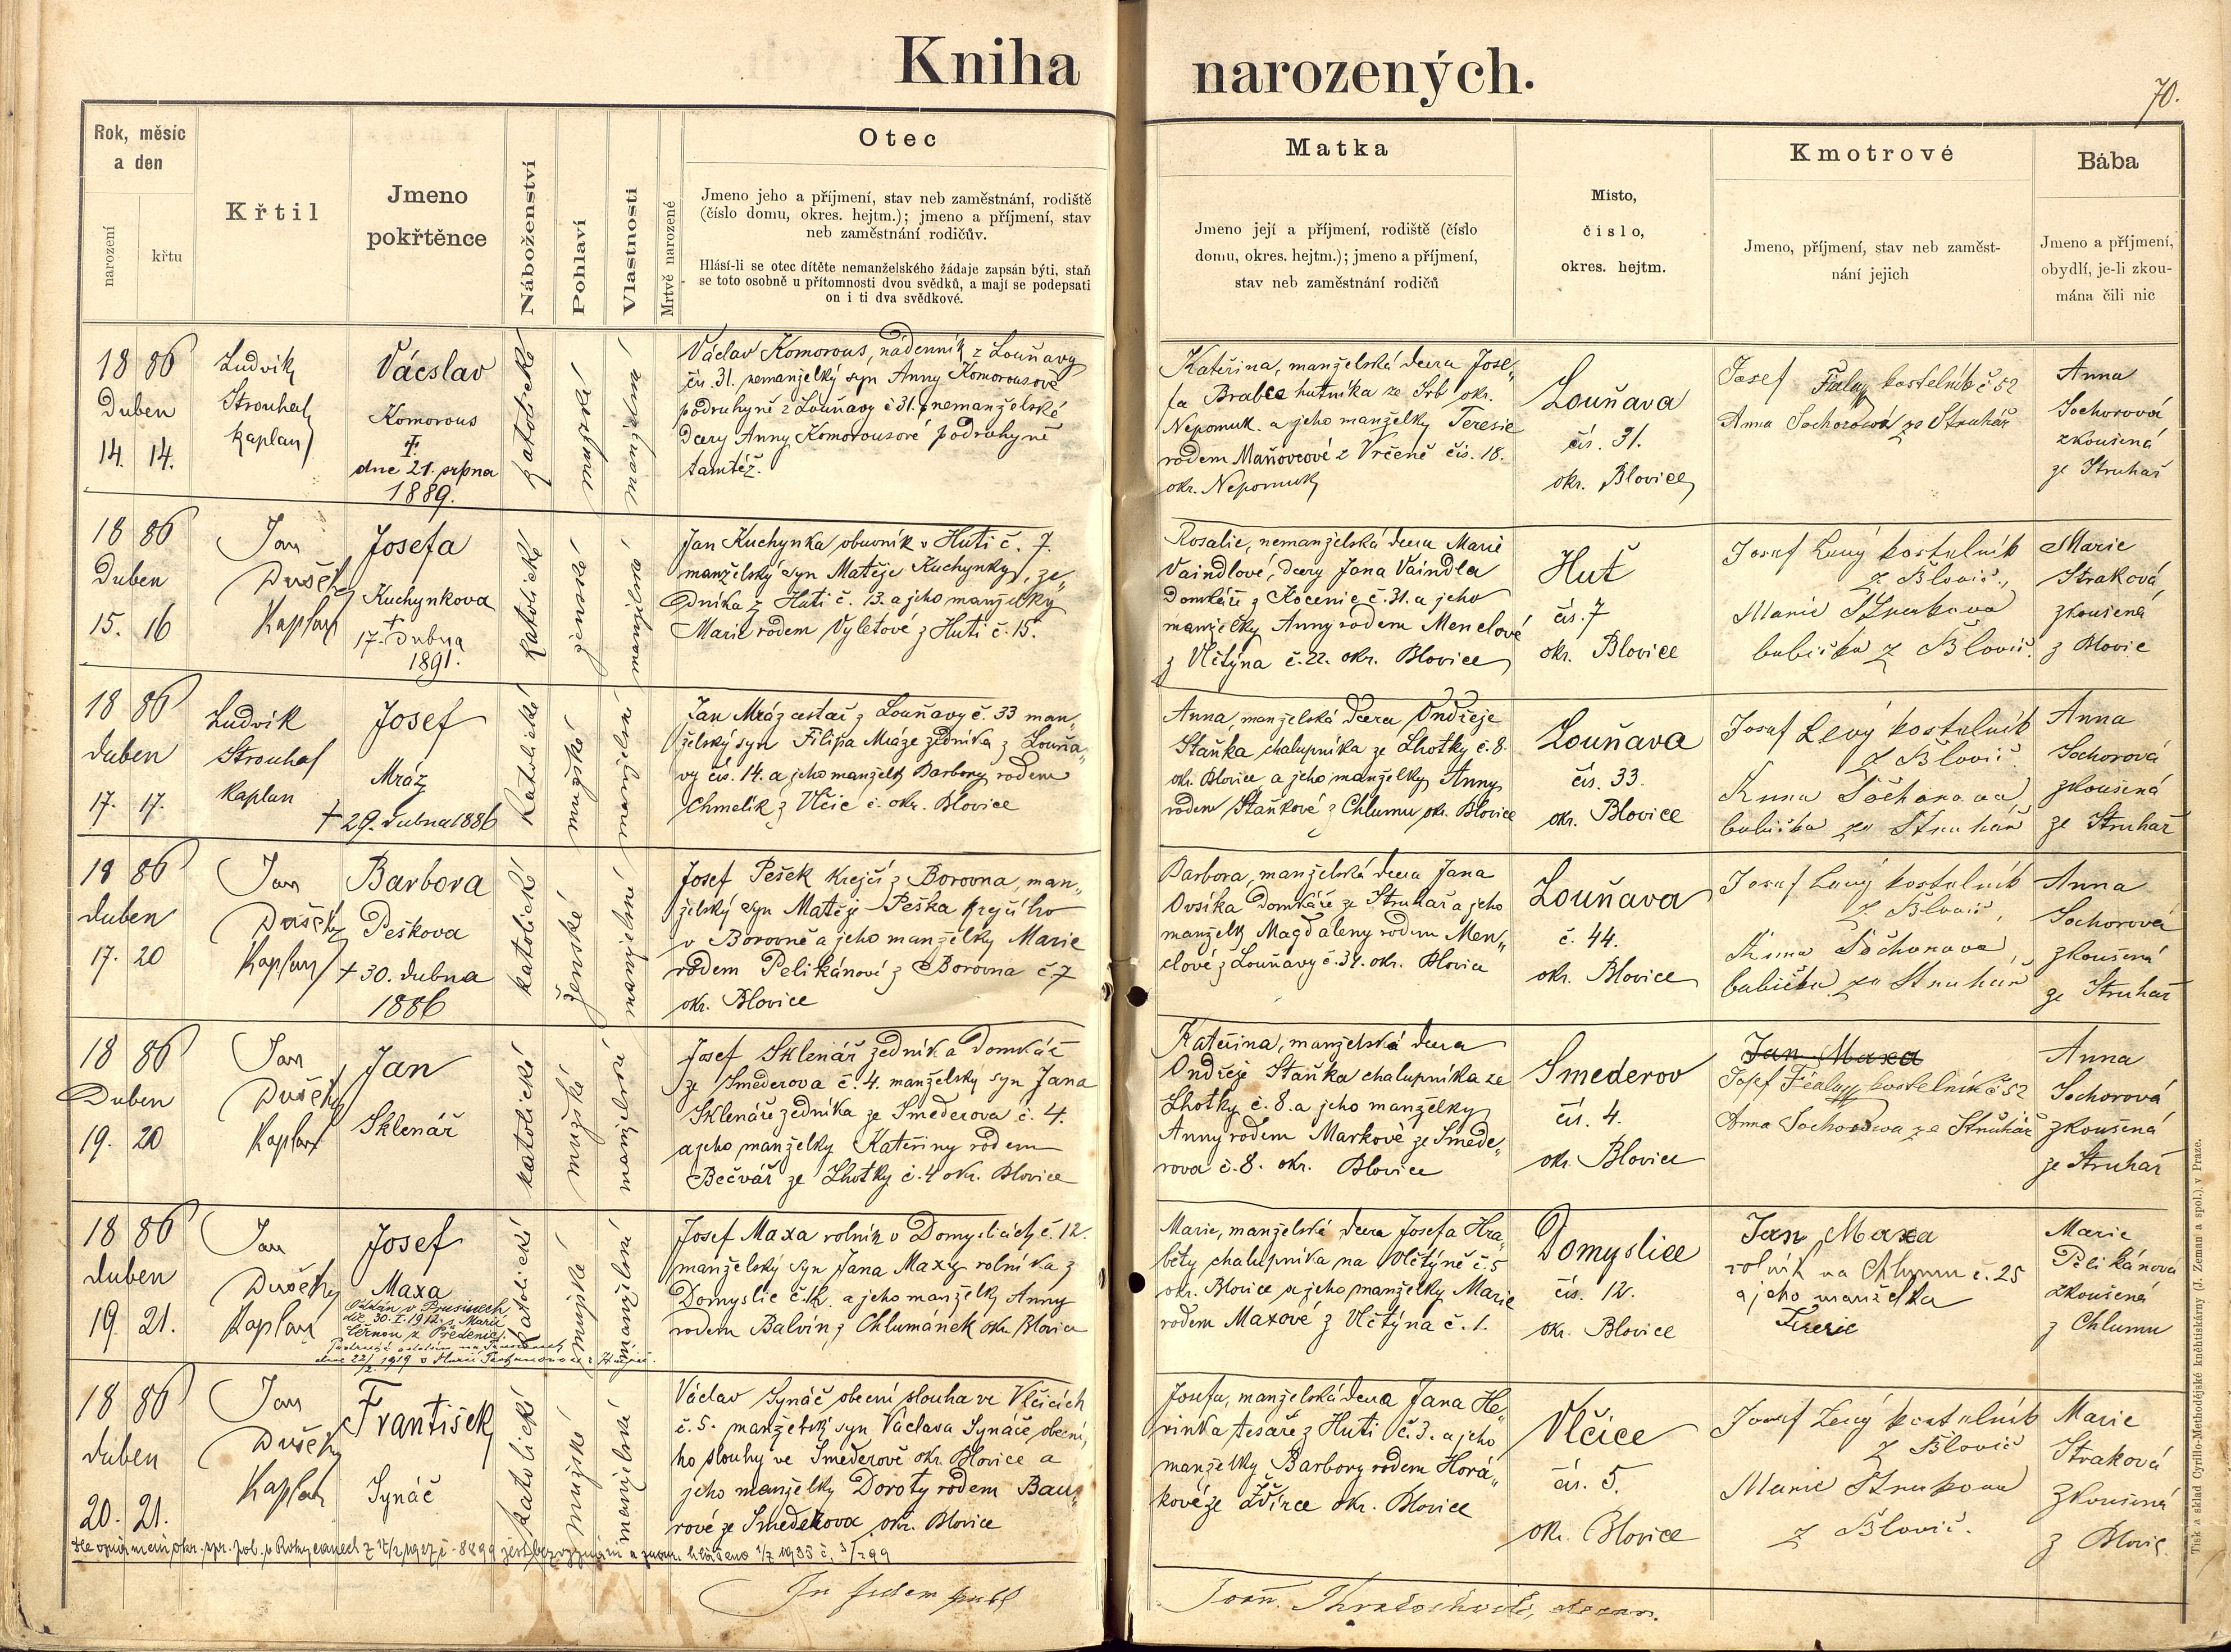 Kniha narozených.
70.
Rok, měsíc
a den
narození
křtu
Křtil
Jmeno
pokřtěnce
Náboženství
Pohlaví
Vlastnosti
Mrtvě narozené
Otec
Jmeno jeho a příjmení, stav neb zaměstnání, rodiště
(číslo domu, okres. hejtm.); jmeno a příjmení, stav
neb zaměstnání rodičův.
Hlásí-li se otec dítěte nemanželského žádaje zapsán býti, staň
se toto osobně u přítomnosti dvou svědků, a mají se podepsati
on i ti dva svědkové.
Matka
Jmeno její a příjmení, rodiště (číslo
domu, okres. hejtm.); jmeno a příjmení,
stav neb zaměstnání rodičů
Misto,
číslo,
okres. hejtm.
Kmotrové
Jmeno, příjmení, stav neb zaměst-
nání jejich
Bába
Jmeno a příjmení,
obydlí, je-li zkou-
mána čili nic
18 86
Duben
14. 14.
Ludvik
Strouhal
kaplan
Vácslav
Komorous
†
dne 21. srpna
1889.
katolické
mužské
manželské
Václav Komorous, nádenník z Louňavy
čís. 31. nemanželký syn Anny Komorousové
podruhyně z Louňavy č 31. nemanželské
dcery Anny Komorousové podruhyně
tamtéž.
Kateřina, manželská dcera Jose„
fa Brabce hutníka ze Srb okr.
Nepomuk a jeho manželky Teresie
rodem Maňovcové z Vrčeně čís. 18.
okr. Nepomuk
Louňava
čís. 31.
okr. Blovice
Josef Fialay kostelník č 52
Anna Sochorová ze Struhař
Anna
Sochorová
zkoušená
ze Struhař
18 86
Duben
15. 16
Jan
Dušek
Kaplan
Josefa
Kuchynkova
†
17. Dubna
1891.
katolické
ženské
manželské
Jan Kuchynka obuvník v Huti č. 7.
manželský syn Matěje Kuchynky, ze„
dníka z Huti č. 13. a jeho manželky
Marie rodem Vyletové z Huti č. 15.
Rosalie, nemanželská dcera Marie
Vaindlové, dcery Jana Vaindla
Domkáře z Kocenic č. 31. a jeho
manželky Anny rodem Menclové
z Vlčtýna č. 22. okr. Blovice
Huť
čís. 7
okr. Blovice
Josef Levý kostelník
z Blovic.,
Marie Strakova
babička z Blovic.
Marie
Straková,
zkoušená
z Blovic
18 86
duben
17. 17.
Ludvik
Strouhal
Kaplan
Josef
Mráz
† 29. dubna 1886
Katolické
mužské
manželské
Jan Mráz cestař z Louňavy č. 33 man„
želský syn Filipa Mráze zedníka z Louňa„
vy čís. 14. a jeho manželky Barbory rodem
Chmelík z Vlčic č. okr. Blovice
Anna, manželská dcera Ondřeje
Staňka chalupníka ze Lhotky č. 8.
okr. Blovice, a jeho manželky Anny
rodem Staňkové z Chlumu okr. Blovice
Louňava
čís. 33.
okr. Blovice
Josef Levý kostelník
z Blovic.
Anna Sochorova,
babička ze Struhař
Anna
Sochorová
zkoušená
ze Struhař
18 86
duben
17. 20
Jan
Dušek
Kaplan
Barbora
Peškova
† 30. dubna
1886
katolické
ženské
manželské
Josef Pešek Krejčí z Borovna, man„
želský syn Matěje Peška krejčího
v Borovně a jeho manželky Marie
rodem Pelikánové z Borovna č. 7
okr. Blovice
Barbora, manželská dcera Jana
Ovsíka Domkáře ze Struhař a jeho
manželky Magdaleny rodem Men„
clové z Louňavy č. 34. okr. Blovice
Louňava
č. 44.
okr. Blovice
Josef Levý kostelník
z Blovic,
Anna Sochorova
babička ze Struhař
Anna
Sochorová
zkoušená
ze Struhař
18 86
Duben
19. 20
Jan
Dušek
Kaplan
Jan
Sklenář
katolické
mužské
manželské
Josef Sklenář zedník a Domkář
ze Smederova č. 4. manželský syn Jana
Sklenáře zedníka ze Smederova č. 4.
a jeho manželky Kateřiny rodem
Bečvář ze Lhotky č. 4 okr. Blovice
Kateřina, manželská dcera
Ondřeje Staňka chalupníka ze
Lhotky č. 8. a jeho manželky
Anny rodem Markové ze Smede„
rova č. 8. okr. Blovice
Smederov
čís. 4.
okr. Blovice
Jan Maxa
Josef Fialay kostelník č 52
Anna Sochorova ze Struhař
Anna
Sochorová
zkoušená
ze Struhař
18 86
duben
19. 21.
Jan
Dušek
Kaplan
Josef
Maxa
Oddán v Prusinech
dne 30. I. 1912. s Marií
Černou z Předenic.
dne 22/2 1919 s Marií
katolické
mužské
manželské
Josef Maxa rolník v Domyslicích č. 12.
manželský syn Jana Maxy rolníka z
Domyslic č. 12. a jeho manželky Anny
rodem Balvín z Chlumánek okr. Blovice
Marie, manželská dcera Josefa Hra„
běty chalupníka na Vlčtýně č. 5
okr. Blovice a jeho manželky Marie
rodem Maxové z Vlčtýna č. 1.
Domyslice
čís. 12.
okr. Blovice
Jan Maxa
rolník na Chlumu č. 25
a jeho manželka
Terezie
Marie
Pelikánova
zkoušená
z Chlumu
18 86
duben
20. 21.
Jan
Dušek
Kaplan
František
Synáč
katolické
mužské
manželské
Václav Synáč obecní slouha ve Vlčicích
č. 5. manželský syn Václava Synáče obecní„
ho slouhy ve Smederově okr. Blovice a
jeho manželky Doroty rodem Bau„
rové ze Smederova okr. Blovice
Josefa, manželská dcera Jana He„
rinka tesaře z Huti č. 3. a jeho
manželky Barbory rodem Horá„
kové ze Ždírce okr. Blovice
Vlčice
čís. 5.
okr. Blovice
Josef Levý kostelník
z Blovic
Marie Strakova
z Blovic.
Marie
Straková
zkoušená
z Blovic.
okr. spr. pol. v Rokycanech č. 8899 jest bez vyznání
In fidem publ
Joan. Khratochvile, decan.
Tisk a sklad Cyrillo-Methodějské kněhtiskárny (J. Zeman a spol.) v Praze.